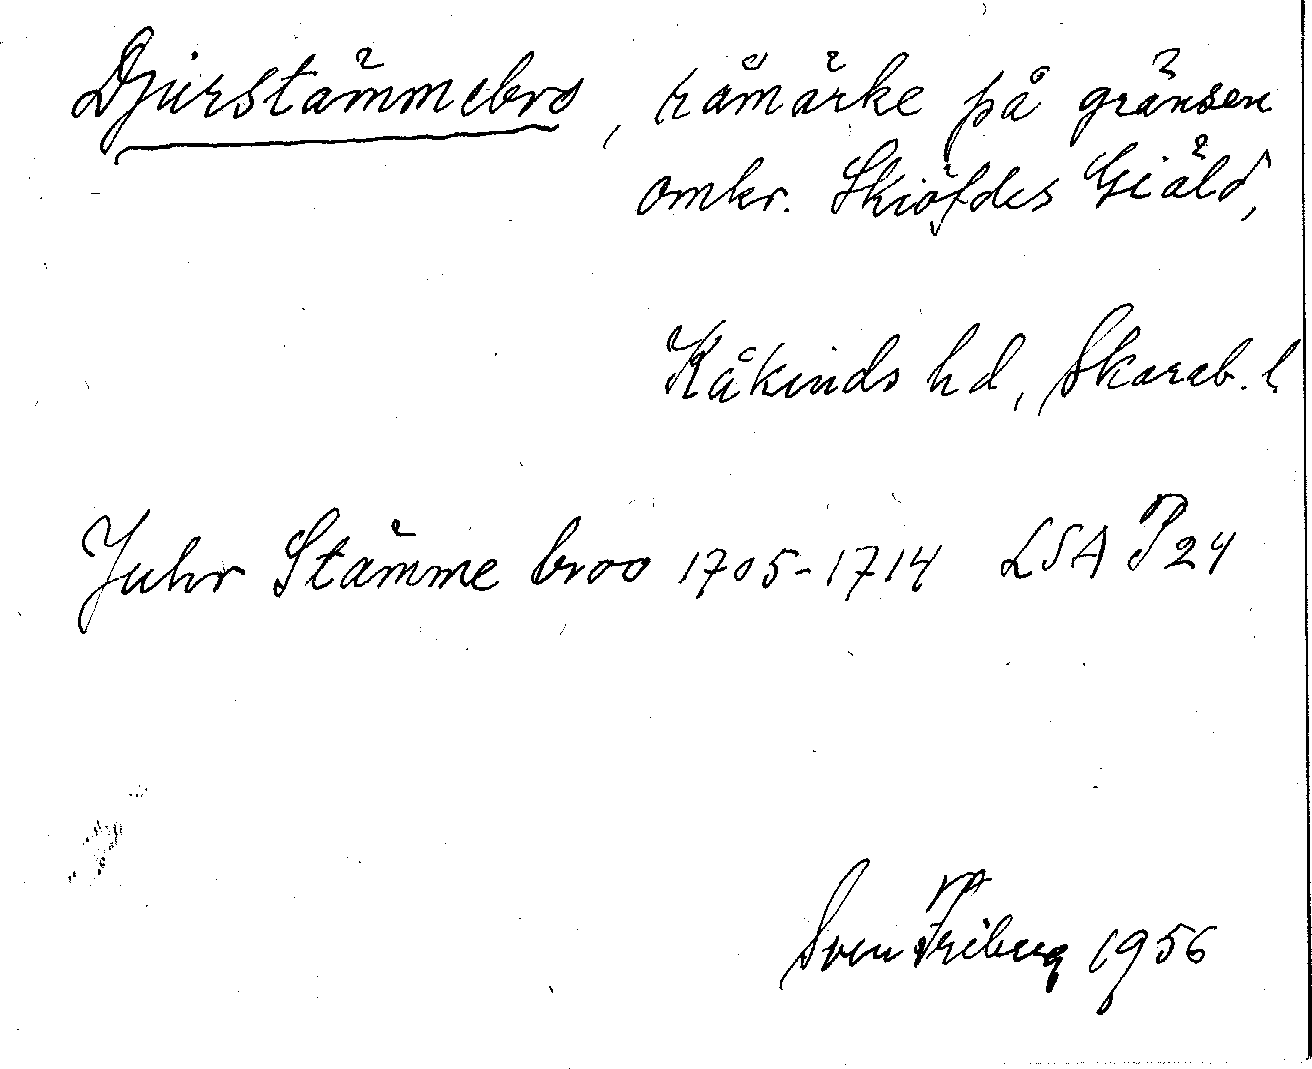 Djurstämmebro, råmärke på gränsen
omkr. Skiöfdes Giäld,
Kåkinds hd, Skarab. l.
Juhr Stämme broo 1705-1714 LSA P24
Sven Friberg 1956